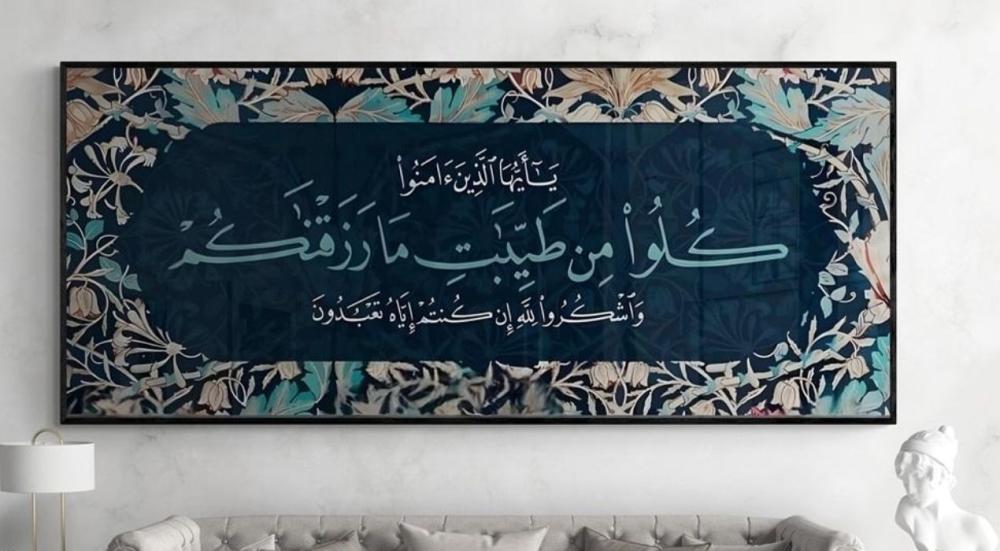 يَـٰٓأَيُّهَا ٱلَّذِينَ ءَامَنُوا۟
كُلُوا۟ مِن طَيِّبَـٰتِ مَا رَزَقْنَـٰكُمْ
وَٱشْكُرُوا۟ لِلَّهِ إِن كُنتُمْ إِيَّاهُ تَعْبُدُونَ